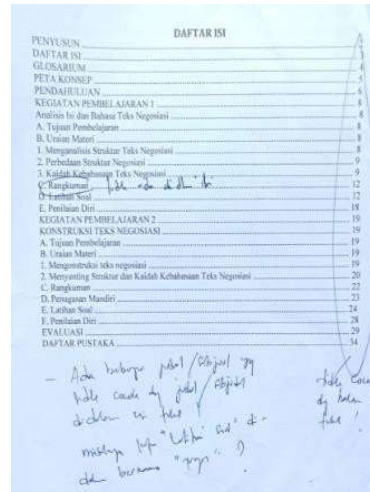 DAFTAR ISI
PENYUSUN
DAFTAR ISI
GLOSARIUM 4
PETA KONSEP 5
PENDAHULUAN 6
KEGIATAN PEMBELAJARAN 1 8
Analisis Isi dan Bahasa Teks Negosiasi 8
A. Tujuan Pembelajaran 8
B. Uraian Materi 8
1. Menganalisis Struktur Teks Negosiasi 8
2. Perbedaan Struktur Negosiasi 9
3. Kaidah Kebahasaan Teks Negosiasi 9
C. Rangkuman tidak ada di dlm isi 12
D. Latihan Soal 12
E. Penilaian Diri 18
KEGIATAN PEMBELAJARAN 2 19
KONSTRUKSI TEKS NEGOSIASI 19
A. Tujuan Pembelajaran 19
B. Uraian Materi 19
1. Mengonstruksi teks negosiasi 19
2. Menyunting Struktur dan Kaidah Kebahasaan Teks Negosiasi 20
C. Rangkuman 22
D. Penugasan Mandiri 23
E. Latihan Soal 24
F. Penilaian Diri 28
EVALUASI 29
DAFTAR PUSTAKA 34
- Ada beberapa judul /
tidak cocok dg judul
di dalam isi
misalnya "Latihan Soal" di
tidak cocok
dg halaman